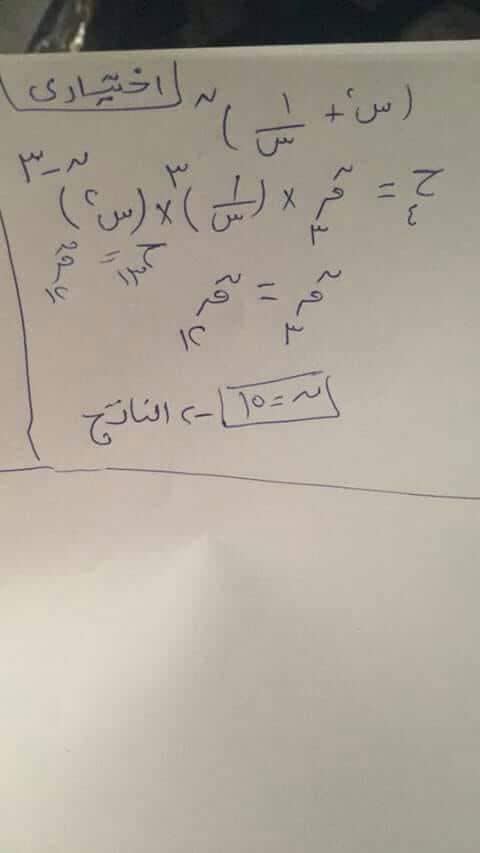 اختياري
(س٢ + ١/س)ن
ح٤ = نق٣ × (١/س)٣ × (س٢)ن-٣
ح١٣ = نق١٢
نق٣ = نق١٢
ن = ١٥ الناتج